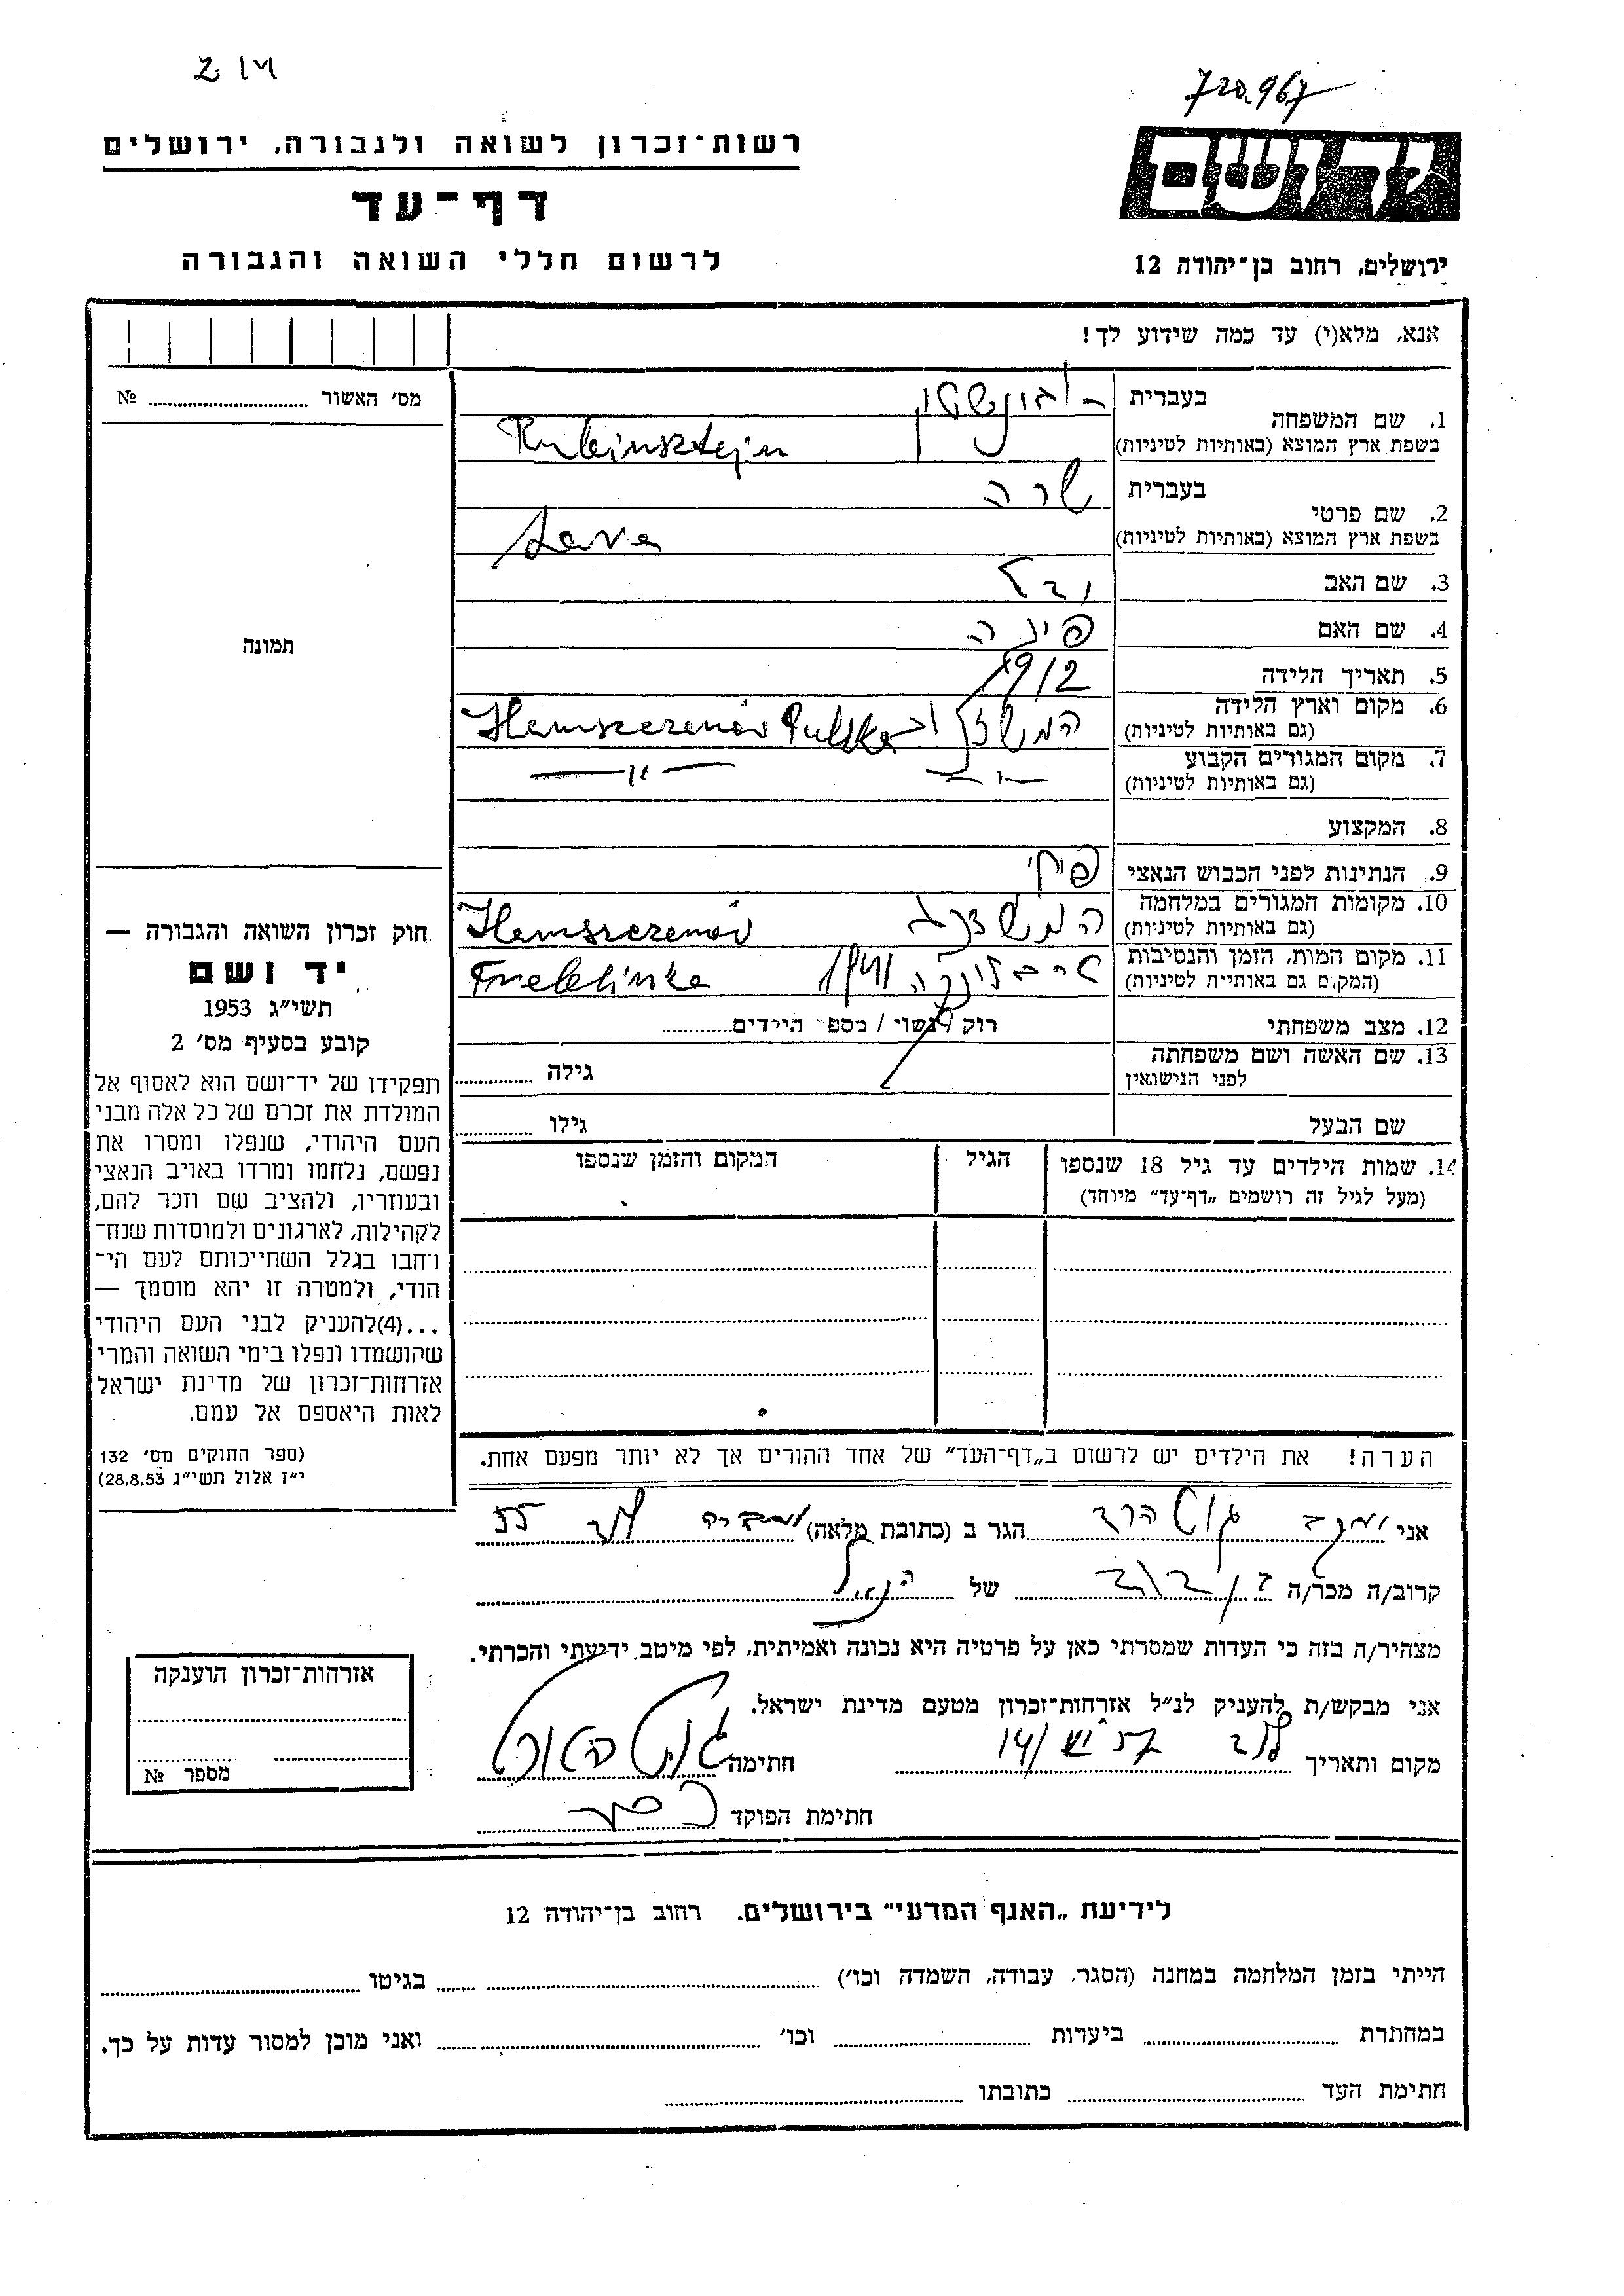 214
720.967
רשות־זכרון לשואה ולגבורה, ירושלים
דף־עד
לרשום חללי השואה והגבורה
יד ושם
ירושלים, רחוב בן־יהודה 12
אנא, מלא(י) עד כמה שידוע לך!
מס׳ האשור № 
תמונה
חוק זכרון השואה והגבורה —
יד ושם
תשי״ג 1953
קובע בסעיף מס׳ 2
תפקידו של יד־ושם הוא לאסוף אל
המולדת את זכרם של כל אלה מבני
העם היהודי, שנפלו ומסרו את
נפשם, נלחמו ומרדו באויב הנאצי
ובעוזריו, ולהציב שם וזכר להם,
לקהילות, לארגונים ולמוסדות שנח־
ר׳חבו בגלל השתייכותם לעם הי־
הודי, ולמטרה זו יהא מוסמך —
...(4)להעניק לבני העם היהודי
שהושמדו ונפלו בימי השואה והמרי
אזרחות־זכרון של מדינת ישראל
לאות היאספם אל עמם.
(ספר החוקים מס׳ 132
י״ז אלול תשי״ג 28.8.53)
1. שם המשפחה בעברית רובינשטיין
בשפת ארץ המוצא (באותיות לטיניות) Rubinsztejn
2. שם פרטי בעברית שרה
בשפת ארץ המוצא (באותיות לטיניות) Sara
3. שם האב
4. שם האם
5. תאריך הלידה 1912
6. מקום וארץ הלידה (גם באותיות לטיניות) Hemszezenów Pulska
7. מקום המגורים הקבוע (גם באותיות לטיניות) — " — — " —
8. המקצוע
9. הנתינות לפני הכבוש הנאצי
10. מקומות המגורים במלחמה (גם באותיות לטיניות) Hemszezenów
11. מקום המות, הזמן והנסיבות (המקום גם באותיות לטיניות) טרבלינקה 1941 Treblinka
12. מצב משפחתי רוק / נשוי / מספר הילדים
13. שם האשה ושם משפחתה לפני הנישואין גילה
שם הבעל גילו
14. שמות הילדים עד גיל 18 שנספו הגיל המקום והזמן שנספו
(מעל לגיל זה רושמים „דף־עד״ מיוחד)
הערה! את הילדים יש לרשום ב„דף־העד״ של אחד ההורים אך לא יותר מפעם אחת.
אני הגר ב (כתובת מלאה) לוד 55
קרוב/ה מכר/ה בן דוד של הנ״ל
מצהיר/ה בזה כי העדות שמסרתי כאן על פרטיה היא נכונה ואמיתית, לפי מיטב ידיעתי והכרתי.
אני מבקש/ת להעניק לנ״ל אזרחות־זכרון מטעם מדינת ישראל.
מקום ותאריך לוד חתימה
חתימת הפוקד
אזרחות־זכרון הוענקה
מספר №
לידיעת „האגף המדעי״ בירושלים. רחוב בן־יהודה 12
הייתי בזמן המלחמה במחנה (הסגר, עבודה, השמדה וכו׳) בגיטו
במחתרת ביערות וכו׳ ואני מוכן למסור עדות על כך.
חתימת העד כתובתו